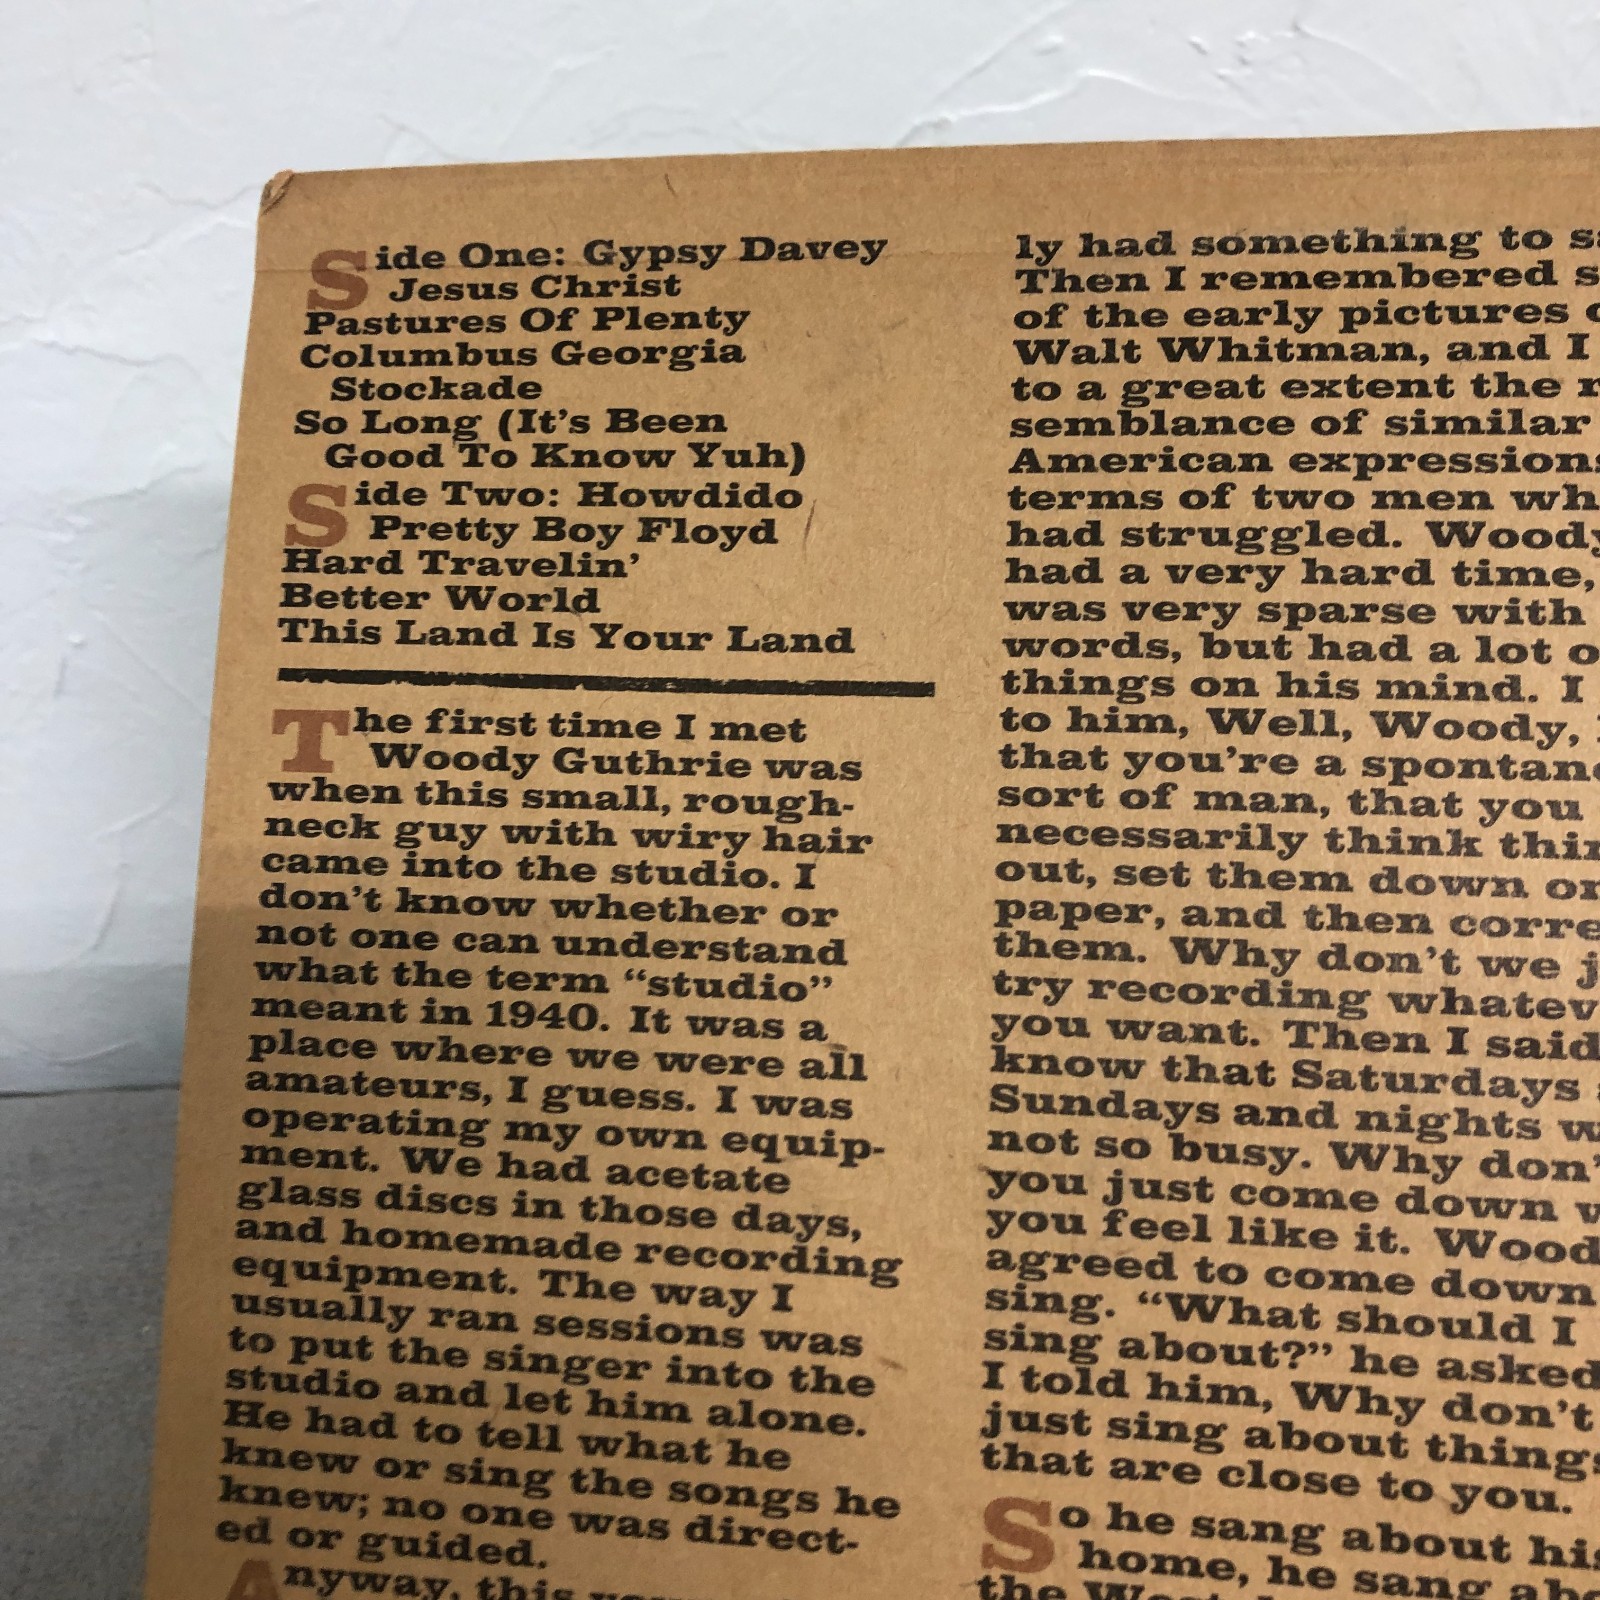 Side One: Gypsy Davey
Jesus Christ
Pastures Of Plenty
Columbus Georgia
Stockade
So Long (It's Been
Good To Know Yuh)
Side Two: Howdido
Pretty Boy Floyd
Hard Travelin'
Better World
This Land Is Your Land
The first time I met
Woody Guthrie was
when this small, rough-
neck guy with wiry hair
came into the studio. I
don't know whether or
not one can understand
what the term “studio”
meant in 1940. It was a
place where we were all
amateurs, I guess. I was
operating my own equip-
ment. We had acetate
glass discs in those days,
and homemade recording
equipment. The way I
usually ran sessions was
to put the singer into the
studio and let him alone.
He had to tell what he
knew or sing the songs he
knew; no one was direct-
ed or guided.
Anyway, this
ly had something to
Then I remembered
of the early pictures
Walt Whitman, and I
to a great extent the
semblance of similar
American
terms of two men
had struggled. Woody
had a very hard time,
was very sparse with
words, but had a lot
things on his mind. I
to him, Well, Woody,
that you're a
sort of man, that you
necessarily think
out, set them down
paper, and then
them. Why don't we
try recording
you want. Then I said
know that Saturdays
Sundays and nights
not so busy. Why
you just come down
you feel like it.
agreed to come down
sing. “What should I
sing about?” he asked
I told him, Why don't
just sing about things
that are close to you.
So he sang about his
home, he sang
the